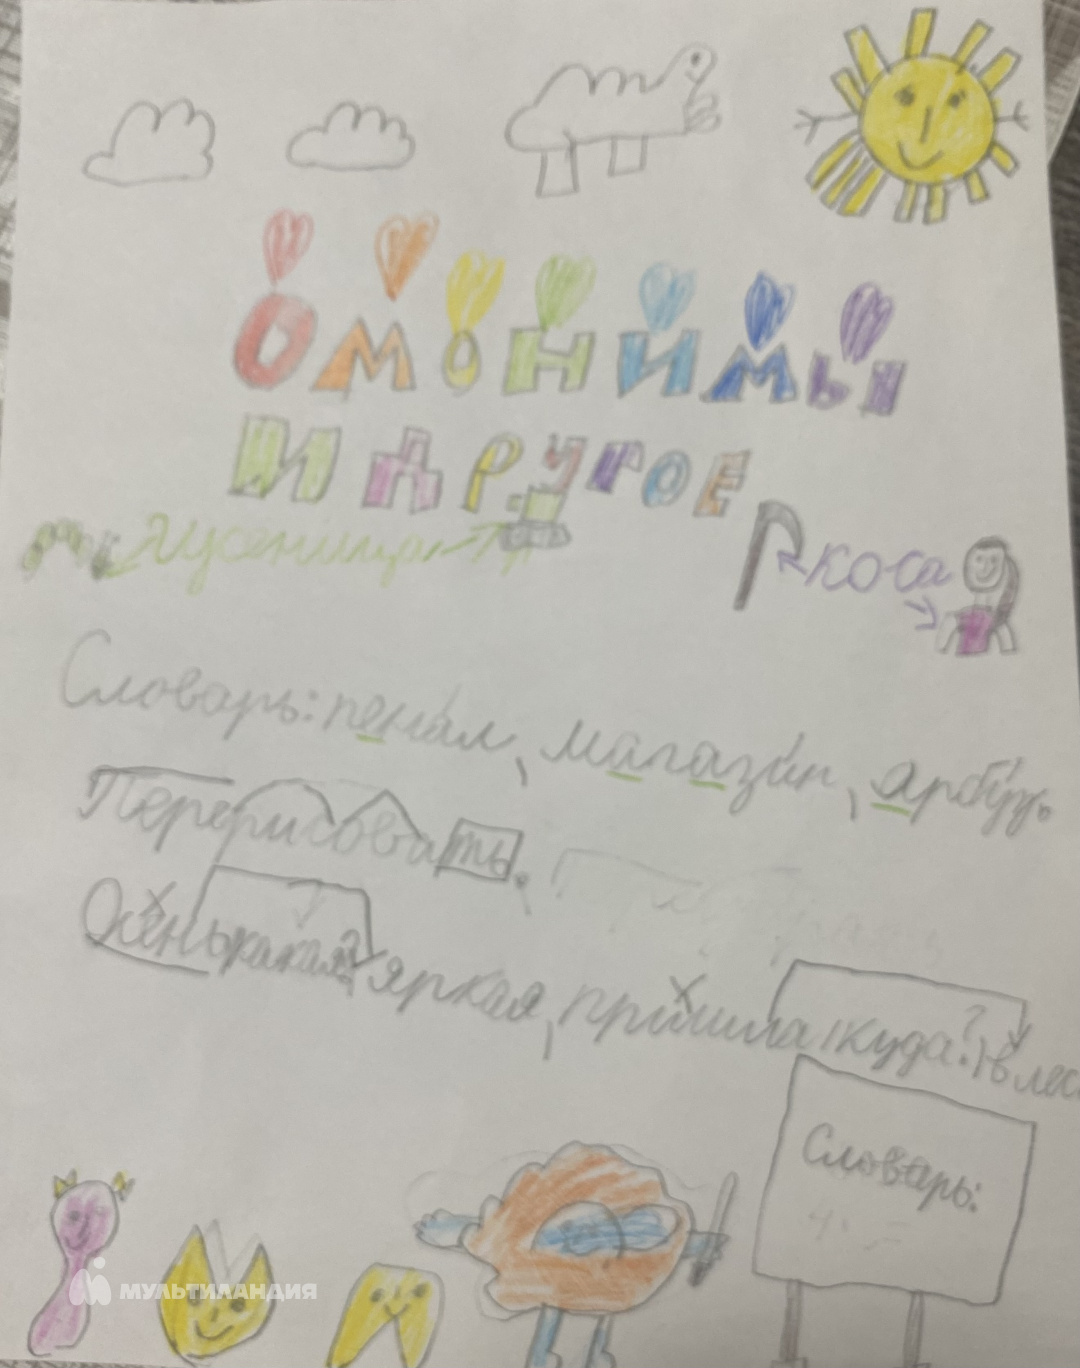 Омонимы
и другое
гусеница
коса
Словарь: пенал, магазин, арбуз.
Перерисовать.
Осень какая? яркая, пришла (куда?) в лес
Словарь:
МУЛЬТИЛАНДИЯ